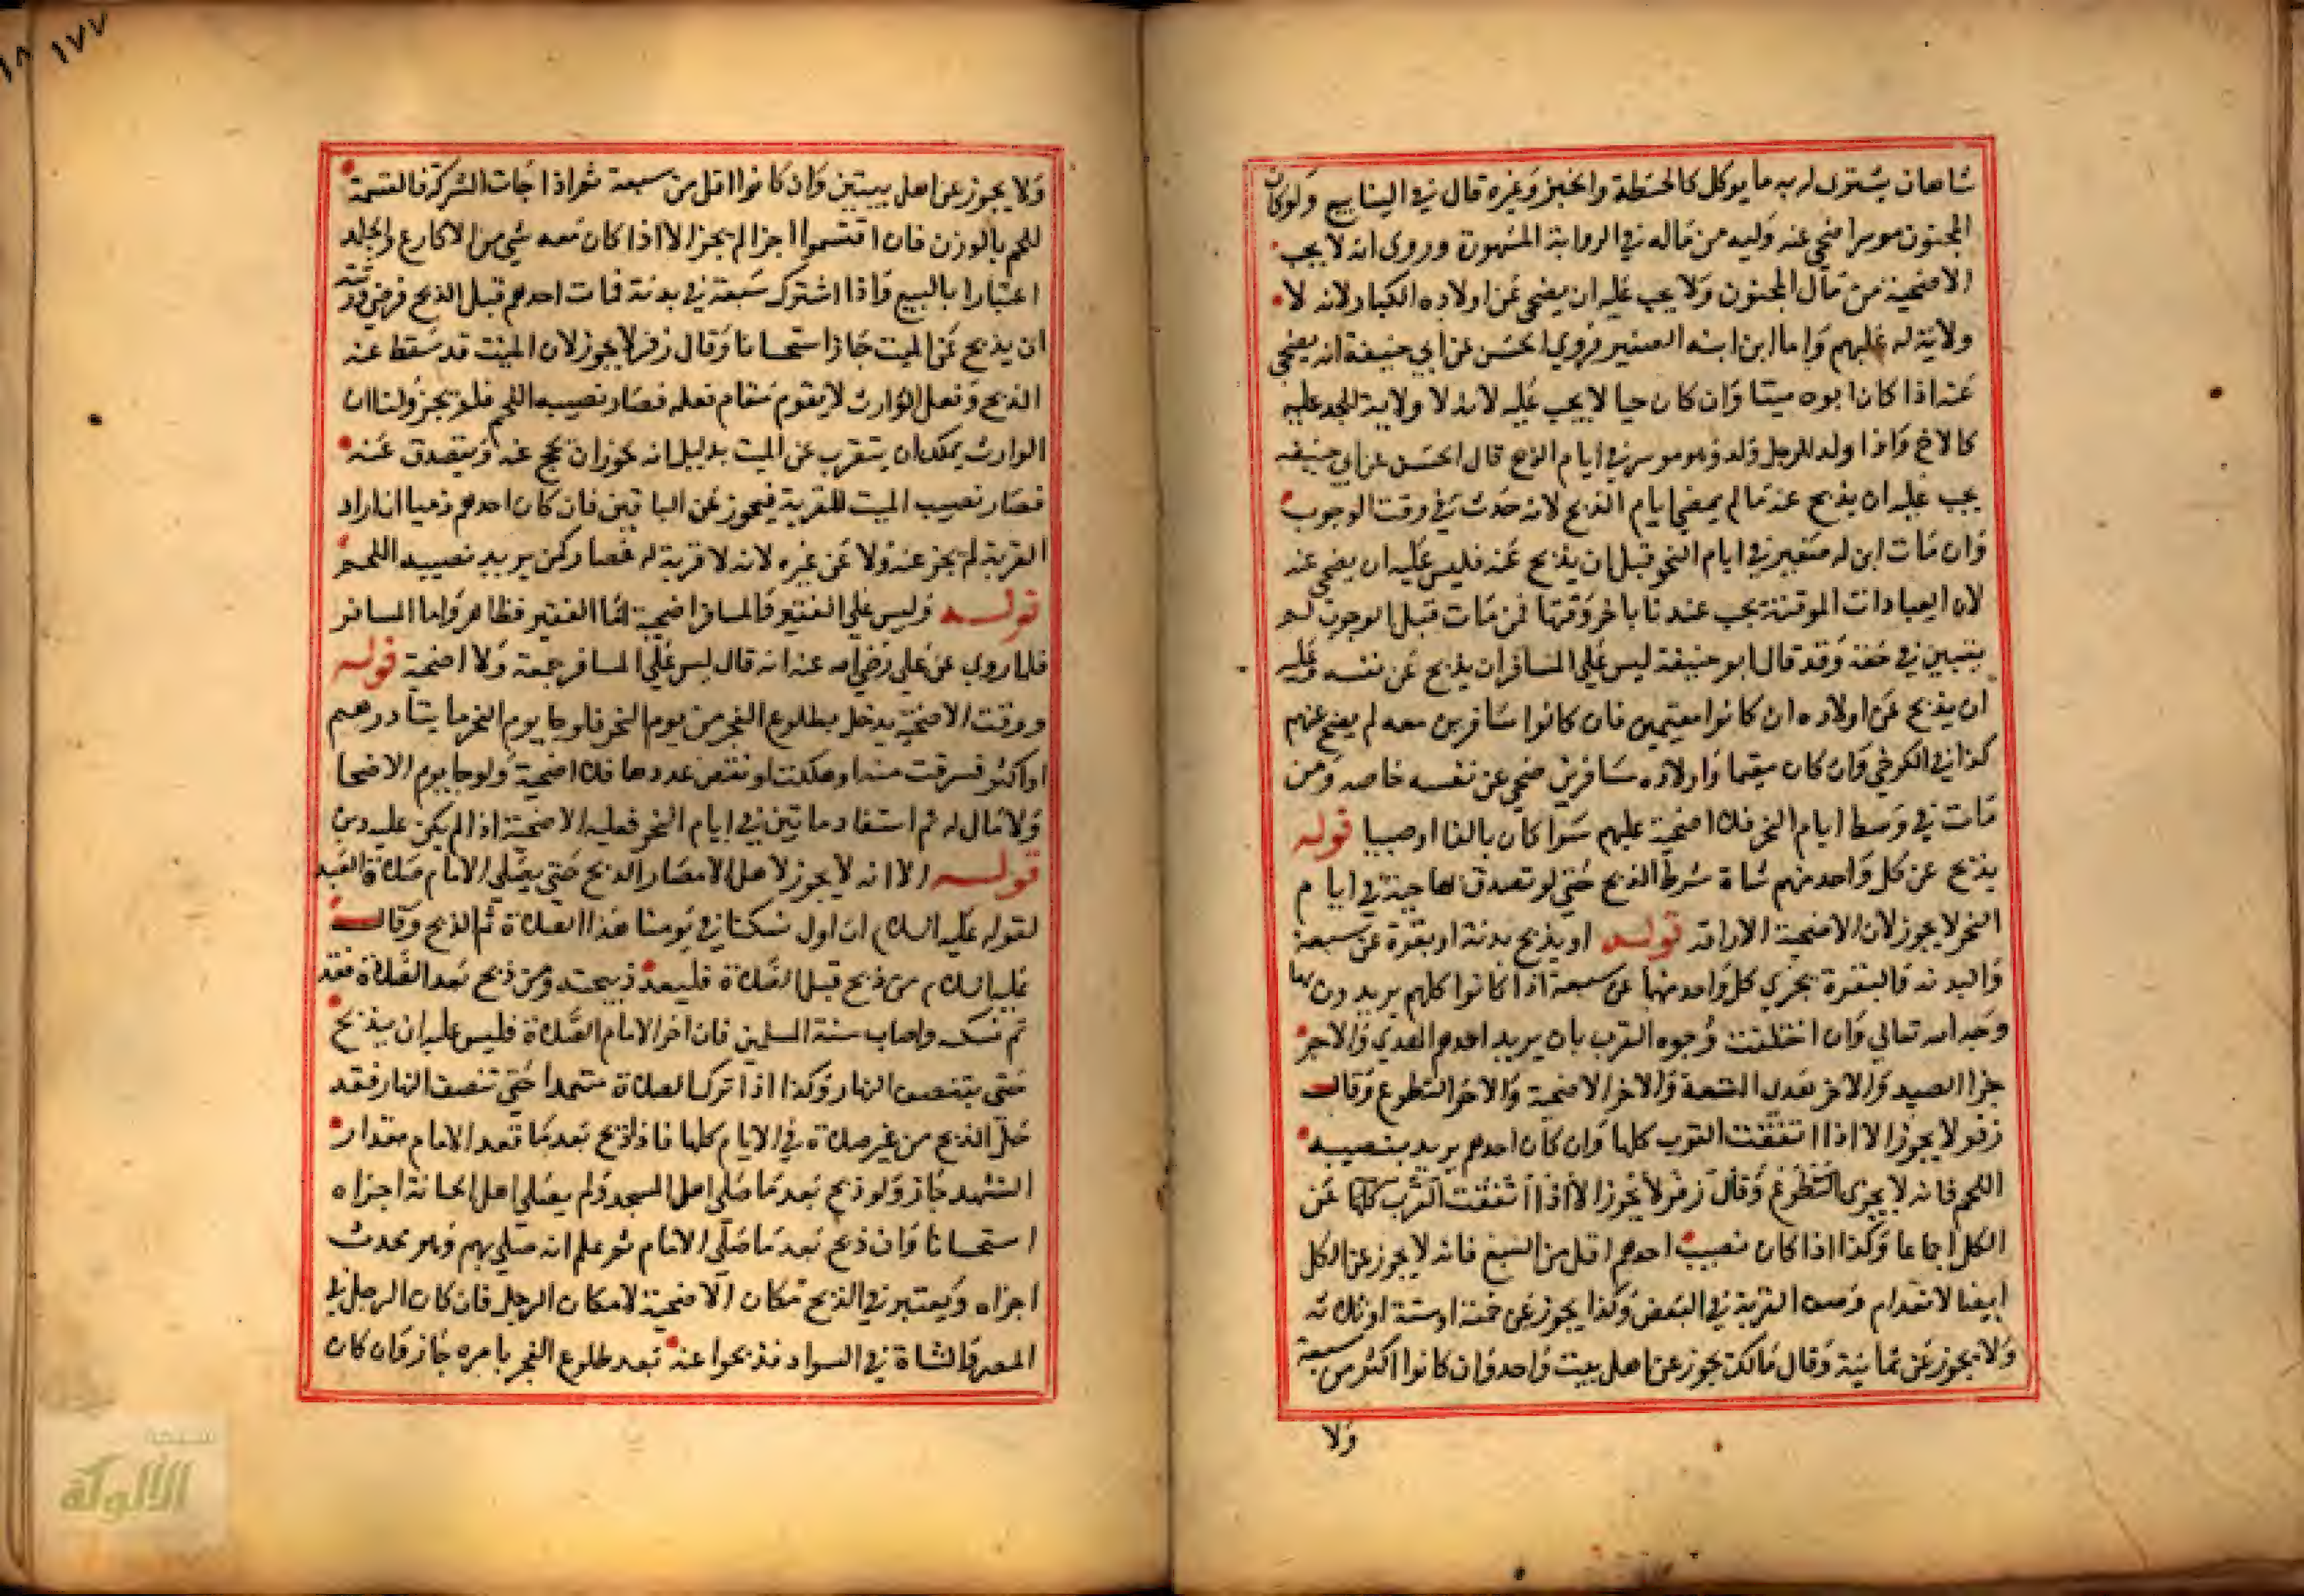 شاهان يشترى له به ما يوكل كالحنطة والخبز وغيره قال في الينابيع ولوكان
المجنون موسرا ضحى عنه وليه من ماله في الرواية المشهورة وروى انه لا يجب
الاضحية من مال المجنون ولا يجب عليه ان يضحى عن اولاده الكبار لانه لا
ولاية له عليهم واما ابن ابنه الصغير فروي الحسن عن ابي حنيفة انه يضحى
عنه اذا كان ابوه ميتا وان كان حيا لا يجب عليه لانه لا ولاية للجد عليه
كالاخ واذا ولد للرجل ولد وهو موسر في ايام الذبح قال الحسن عن ابي حنيفه
يجب عليه ان يذبح عنه مالم يمضى ايام الذبح لانه حدث في وقت الوجوب
وان مات ابن له صغير في ايام النحر قبل ان يذبح عنه فليس عليه ان يضحى عنه
لان العبادات الموقتة يجب عندنا باخر وقتها فمن مات قبل الوجوب لم
يتبين في حقه وقد قال ابو حنيفة ليس على المسافر ان يذبح عن نفسه وعليه
ان يذبح عن اولاده ان كانوا مقيمين فان كانوا مسافرين معه لم يضح عنهم
كذا في الكرخي وان كان مقيما واولاده مسافرين ضحي عن نفسه خاصه ومن
مات في وسط ايام النحر فلا اضحية عليهم سوا كان بالغا او صبيا قوله
يذبح عن كل واحد منهم شاة شرط الذبح حتى لو تصدق بها حية في ايام
النحر لا يجوز لان الاضحية الاراقه قوله او يذبح بدنة او بقرة عن سبعة
والبدنه والبقرة يجزي كل واحد منهما عن سبعة اذا كانوا كلهم يريدون بها
وجه الله تعالى وان اختلفت وجوه القرب بان يريد احدهم الهدي والاخر
جزا الصيد والاخر هدى المتعة والاخر الاضحية والاخر التطوع وقال
زفر لا يجوز الا اذا اتفقت القرب كلها وان كان احدهم يريد بنصيبه
اللحم فانه لا يجزى التطوع وقال زفر لا يجوز الا اذا اتفقت القرب كلها عن
الكل اجماعا وكذا اذا كان نصيب احدهم اقل من السبع فانه لا يجوز عن الكل
ايضا لانعدام وصف القربة في البعض وكذا يجوز عن خمسة او ستة او ثلاثه
ولا يجوز عن ثمانية وقال مالك يجوز عن اهل بيت واحد وان كانوا اكثر من سبعة
ولا
١٧٧
ولا يجوز عن اهل بيتين وان كانوا اقل من سبعة ثم اذا جات الشركة فالقسمة
للحم بالوزن فان اقتسموا اجزا لم يجز الا اذا كان معه شي من الاكارع والجلد
اعتبارا بالبيع واذا اشترك سبعة في بدنة فمات احدهم قبل الذبح فرضي ورثته
ان يذبح عن الميت جاز استحسانا وقال زفر لا يجوز لان الميت قد سقط عنه
الذبح وفعل الوارث لا يقوم مقام فعله فصار نصيبه اللحم فلم يجز ولنا ان
الوارث يمكن ان يتقرب عن الميت بدليل انه يجوز ان يحج عنه ويتصدق عنه
فصار نصيب الميت للقربة فيجوز عن الباقين فان كان احدهم ذميا اراد
القربة لم يجز عنه ولا عن غيره لانه لا قربة له فصار كمن يريد نصيبه اللحم
قوله وليس على الفقير والمسافر اضحية اما الفقير فظاهر واما المسافر
فلما روى عن علي رضي الله عنه انه قال ليس على المسافر جمعة ولا اضحية قوله
ووقت الاضحية يدخل بطلوع الفجر من يوم النحر فلو جا يوم النحر مايتا درهم
او اكثر فسرقت منه او هلكت او نقص عددها فلا اضحية ولو جا يوم الاضحا
ولا مال له ثم استفاد مايتين في ايام النحر فعليه الاضحية اذا لم يكن عليه دين
قوله الا انه لا يجوز لاهل الامصار الذبح حتى يصلي الامام صلاة العيد
لقوله عليه السلام ان اول نسكنا في يومنا هذا الصلاة ثم الذبح وقال
عليه السلام من ذبح قبل الصلاة فليعد ذبيحته ومن ذبح بعد الصلاة فقد
تم نسكه واصاب سنة المسلمين فان اخر الامام الصلاة فليس عليه ان يذبح
حتى ينتصف النهار وكذا اذا ترك الصلاة متعمدا حتى تنصف النهار فقد
حل الذبح من غير صلاة في الايام كلها فاذا ذبح بعد ما قعد الامام مقدار
التشهد جاز ولو ذبح بعد ما صلى اهل المسجد ولم يصلي اهل الجبانة اجزاه
استحسانا وان ذبح بعد ما صلى الامام ثم علم انه صلى بهم وهو محدث
اجزاه ويعتبر في الذبح مكان الاضحية لا مكان الرجل فان كان الرجل في
المصر والشاة في السواد فذبحوا عنه بعد طلوع الفجر بامره جاز وان كان
شبكة
الألوكة